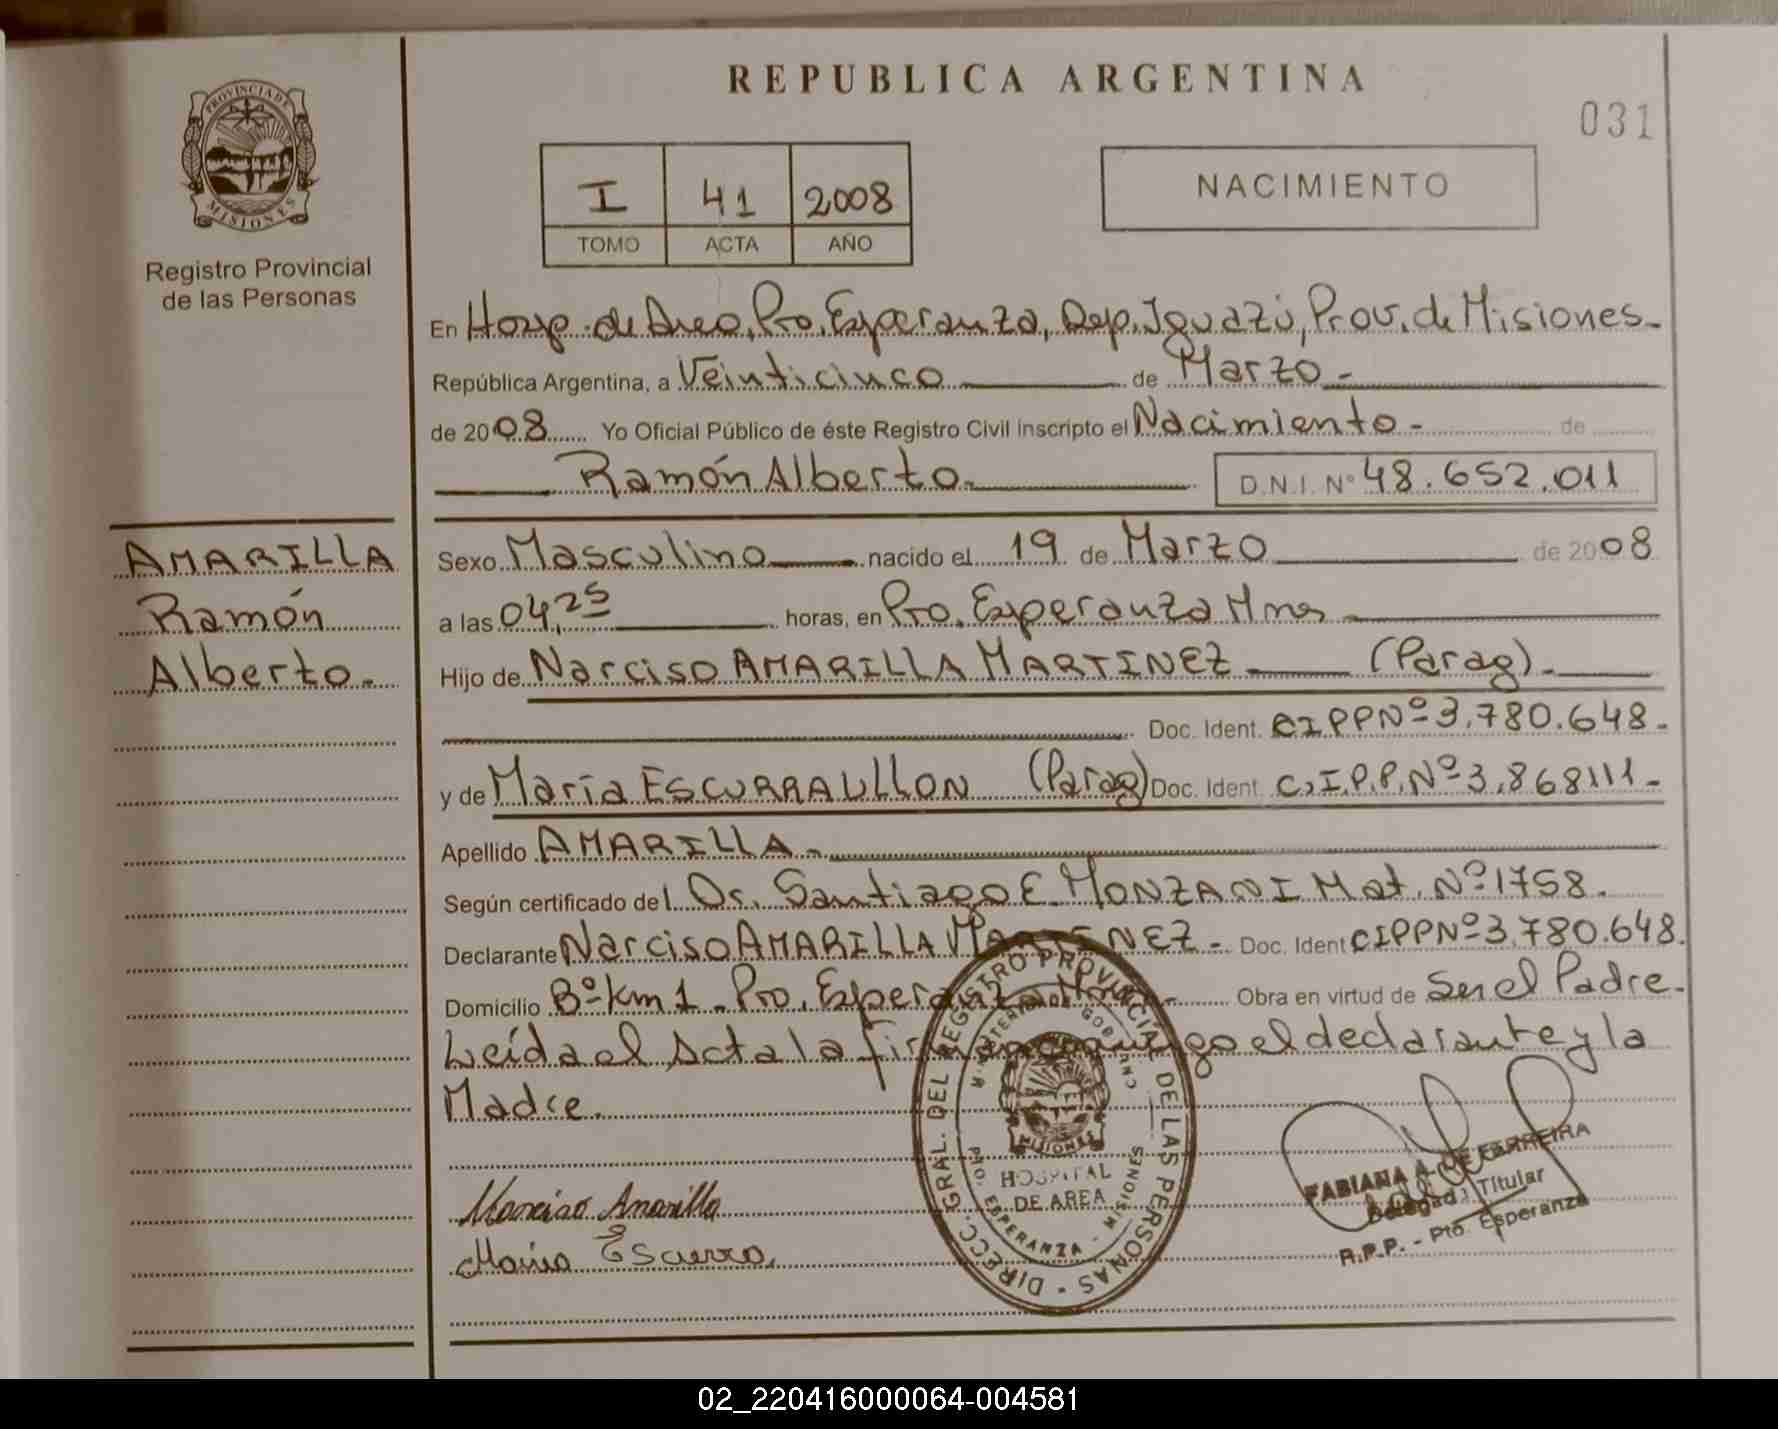 REPUBLICA ARGENTINA
031
PROVINCIA DE
MISIONES
Registro Provincial
de las Personas
I 41 2008
TOMO ACTA AÑO
NACIMIENTO
En Hosp. de Area, Pto. Esperanza, Dep. Iguazú, Prov. de Misiones-
República Argentina, a Veinticinco de Marzo-
de 2008 Yo Oficial Público de éste Registro Civil inscripto el Nacimiento- de
Ramón Alberto- D.N.I. Nº 48.652.011
AMARILLA
Ramón
Alberto.-
Sexo Masculino nacido el 19 de Marzo de 2008
a las 04,25 horas, en Pto. Esperanza Mnes
Hijo de Narciso AMARILLA MARTINEZ (Parag)-
Doc. Ident. CIPPNº 3.780.648-
y de María ESCURRA ULLON (Parag) Doc. Ident. C.I.P.P.Nº 3.868111-
Apellido AMARILLA-
Según certificado del Dr. Santiago E. MONZANI Mat. Nº 1758.
Declarante Narciso AMARILLA MARTINEZ- Doc. Ident CIPPNº 3.780.648.
Domicilio Bº Km 1- Pto. Esperanza Obra en virtud de Ser el Padre-
Leída el Acta la el declarante y la
Madre.
Narciso Amarilla
Maria Escurra
DIRECC. GRAL. DEL REGISTRO PROVINCIAL DE LAS PERSONAS
MINISTERIO DE GOBIERNO
MISIONES
HOSPITAL
DE AREA
PTO. ESPERANZA - MISIONES
FABIANA A. DE FERREIRA
Delegada Titular
R.P.P. - Pto. Esperanza
02_220416000064-004581